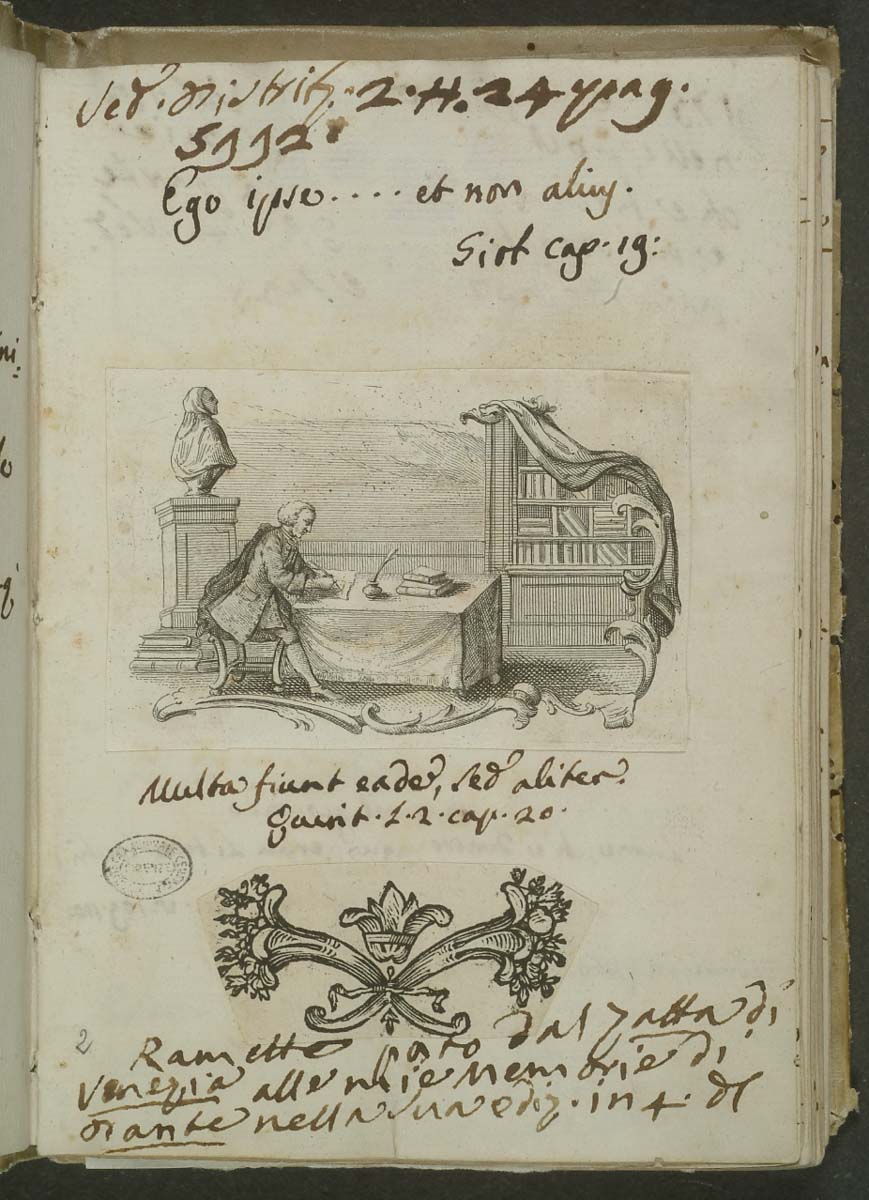 Ved. Distrib. 2. H. 24 pag.
5992.
Ego ipse.... et non alius.
Giob cap. 19:
Multa fiunt eadē, sed aliter.
Quint. L. 2. cap. 20.
2
Rametto posto dal Zatta di
Venezia alle mie Memorie di
Dante nella sua ediz. in 4. di